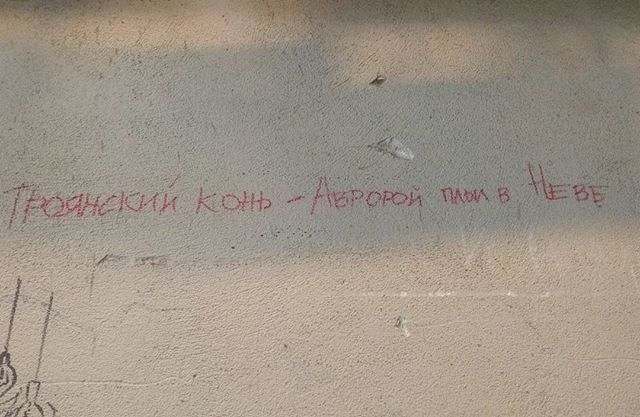 Троянский конь – Авророй плыл в Неве